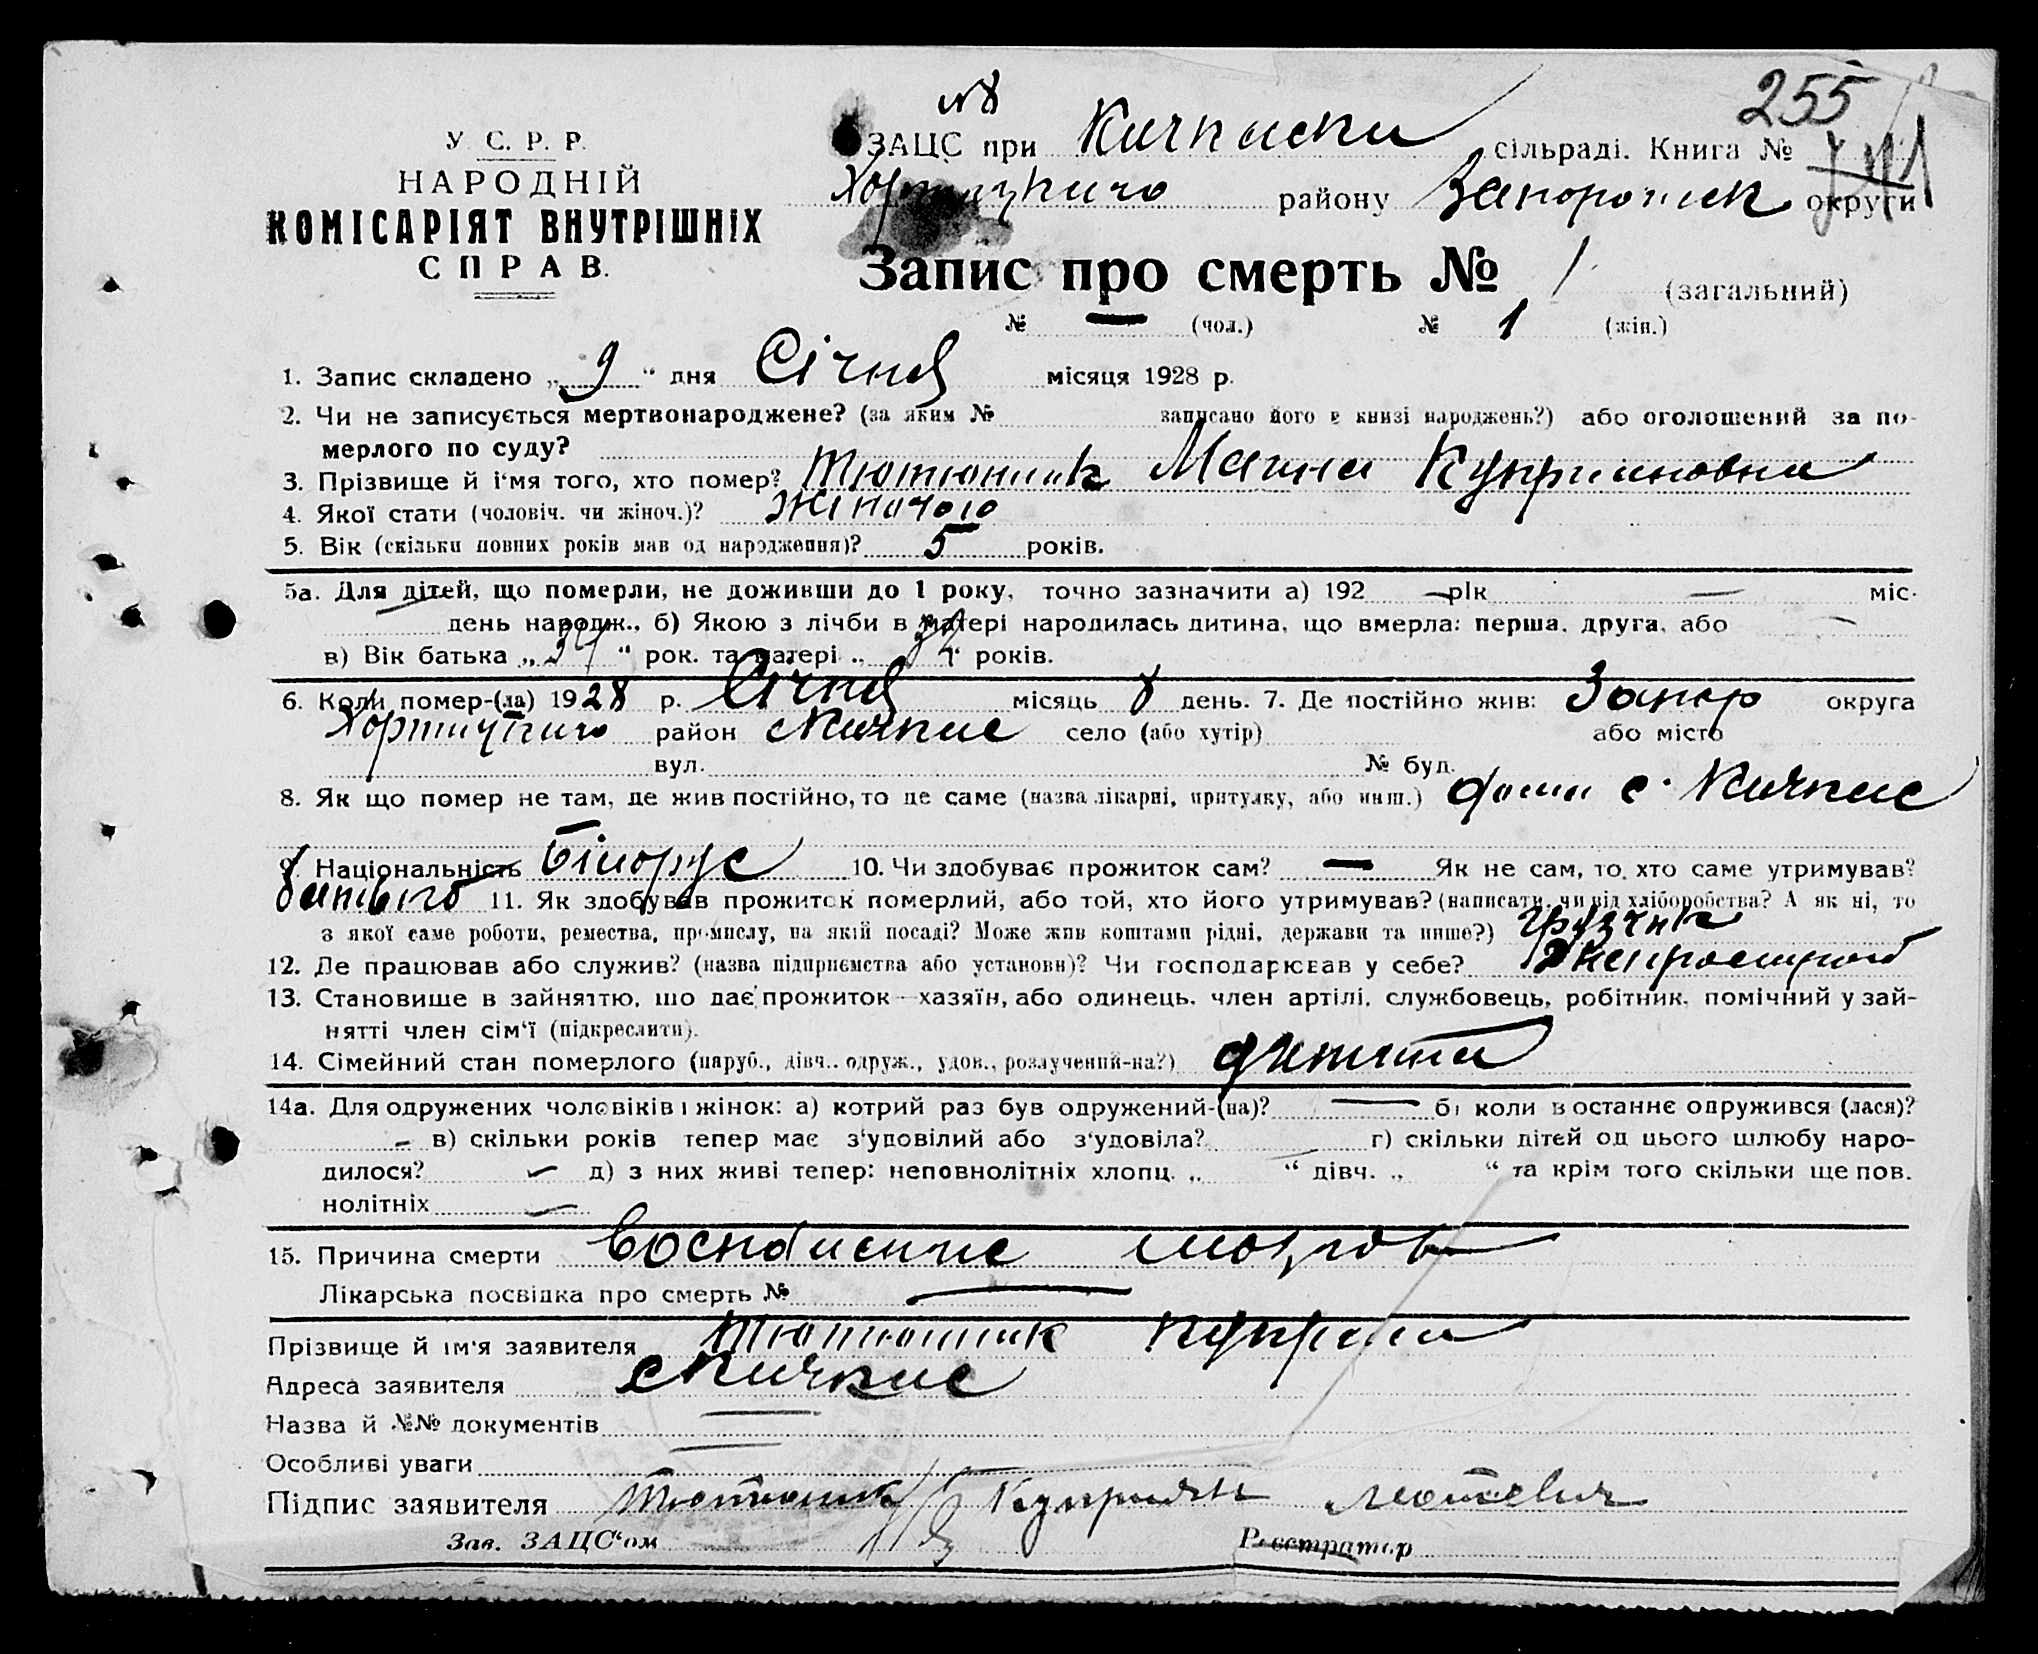 255
№ 8
У. С. Р. Р.
НАРОДНІЙ
КОМІСАРІЯТ ВНУТРІШНІХ
СПРАВ.
ЗАЦС при Кичкаски сільраді. Книга №
Хортицкиго району Запорожск округи
Запис про смерть № 1 (загальний)
№ — (чол.) № 1 (жін.)
1. Запис складено „ 9 “ дня Січня місяця 1928 р.
2. Чи не записується мертвонароджене? (за яким № записано його в книзі народжень?) або оголошений за по-
мерлого по суду?
3. Прізвище й і‘мя того, хто помер? Тютюнник Куприяновна
4. Якої стати (чоловіч. чи жіноч.)? жіночою
5. Вік (скільки повних років мав од народження)? 5 років.
5а. Для дітей, що померли, не доживши до 1 року, точно зазначити а) 192 — рік — міс.
день народж., б) Якою з лічби в матері народилась дитина, що вмерла: перша, друга, або —
в) Вік батька „ 34 “ рок. та матері „ “ років.
6. Коли помер-(ла) 1928 р. Січня місяць 8 день. 7. Де постійно жив: Запор округа
Хортицкиго район Кичкас село (або хутір) або місто
вул. № буд.
8. Як що помер не там, де жив постійно, то де саме (назва лікарні, притулку, або инш.) дома с. Кичкас
9. Національність Білорус 10. Чи здобуває прожиток сам? — Як не сам, то, хто саме утримував?
батько 11. Як здобував прожиток померлий, або той, хто його утримував? (написати, чи від хліборобства? А як ні, то
з якої саме роботи, ремества, промислу, на якій посаді? Може жив коштами рідні, держави та инше?) грузчик
12. Де працював або служив? (назва підприємства або установи)? Чи господарював у себе? Днепрострой
13. Становище в зайняттю, що дає прожиток—хазяїн, або одинець, член артілі, службовець, робітник, помічний у зай-
нятті член сім‘ї (підкреслити).
14. Сімейний стан померлого (паруб., дівч., одруж., удов., розлучений-на?) дитина
14а. Для одружених чоловіків і жінок: а) котрий раз був одружений-(на)? — б) коли в останнє одружився (лася)?
— в) скільки років тепер має з‘уповілий або з‘удовіла? — г) скільки дітей од цього шлюбу наро-
дилося? — д) з них живі тепер: неповнолітніх хлопц. „ “ дівч. „ “ та крім того скільки ще пов.
нолітніх —
15. Причина смерти воспаление мозгов
Лікарська посвідка про смерть № —
Прізвище й ім‘я заявителя Тютюнник
Адреса заявителя с Кичкас
Назва й №№ документів —
Особливі уваги —
Підпис заявителя Тютюник Куприян
Зав. ЗАЦС‘ом Реєстратор